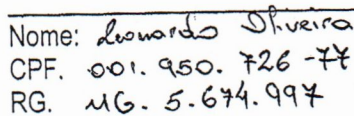 Nome: Leonardo Oliveira
CPF. 001. 950. 726 -77
RG. MG. 5.674.997